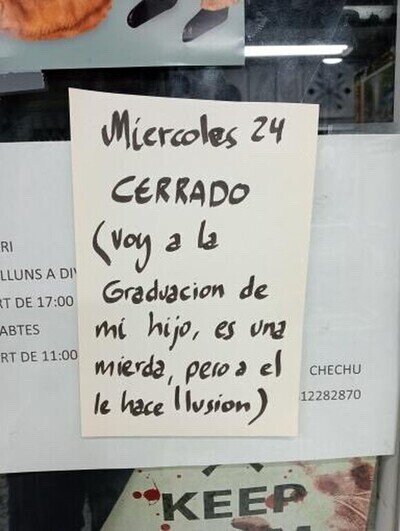 Miercoles 24
CERRADO
(Voy a la
Graduacion de
mi hijo, es una
mierda, pero a el
le hace Ilusion)
RI
LLUNS A DI
RT DE 17:00
ABTES
RT DE 11:00
CHECHU
12282870
KEEP